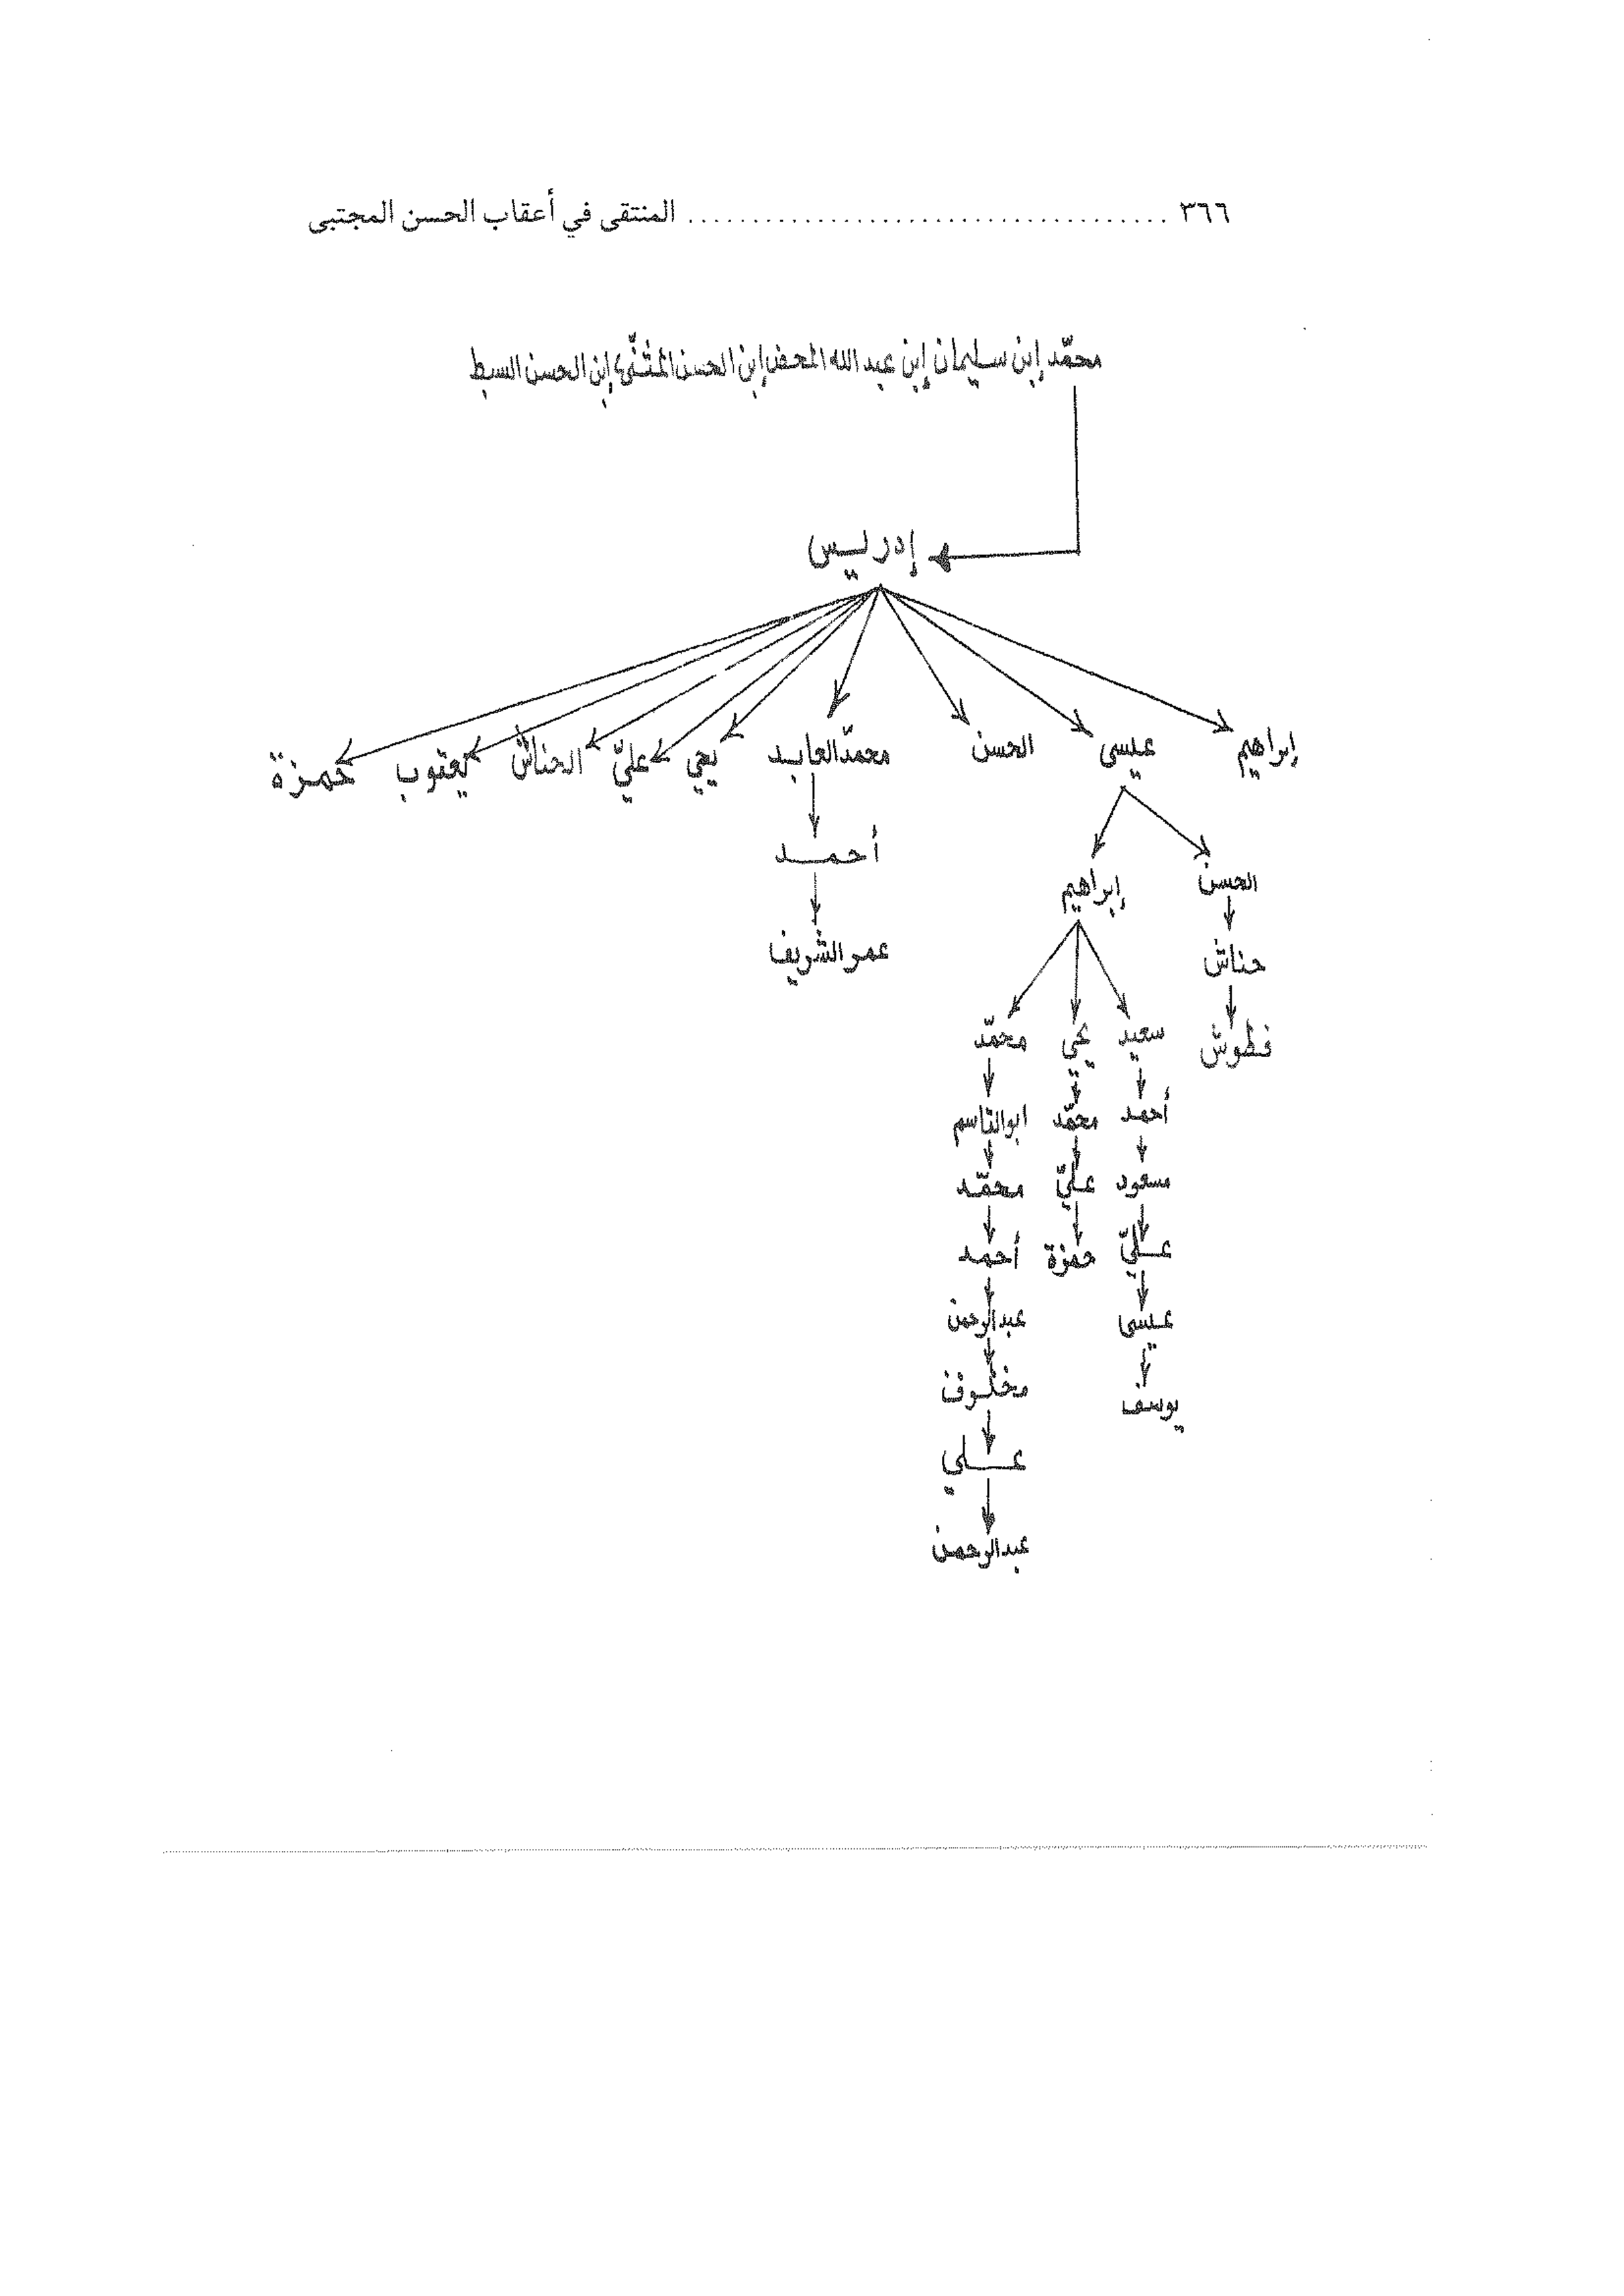 ٣٦٦ .................................... المنتقى في أعقاب الحسن المجتبى
محمّد إبن سليمان إبن عبد الله المحض إبن الحسن المثنّى إبن الحسن السبط
إدريس
إبراهيم عيسى الحسن محمّد العابد يحي عليّ الحناش يعقوب حمزة
الحسن إبراهيم أحمد
حناش عمر الشريف
فطوش سعيد يحي محمّد
أحمد محمّد ابوالقاسم
مسعود عليّ محمّد
عليّ حمزة أحمد
عيسى عبدالرحمن
يوسف مخلوف
علي
عبدالرحمن